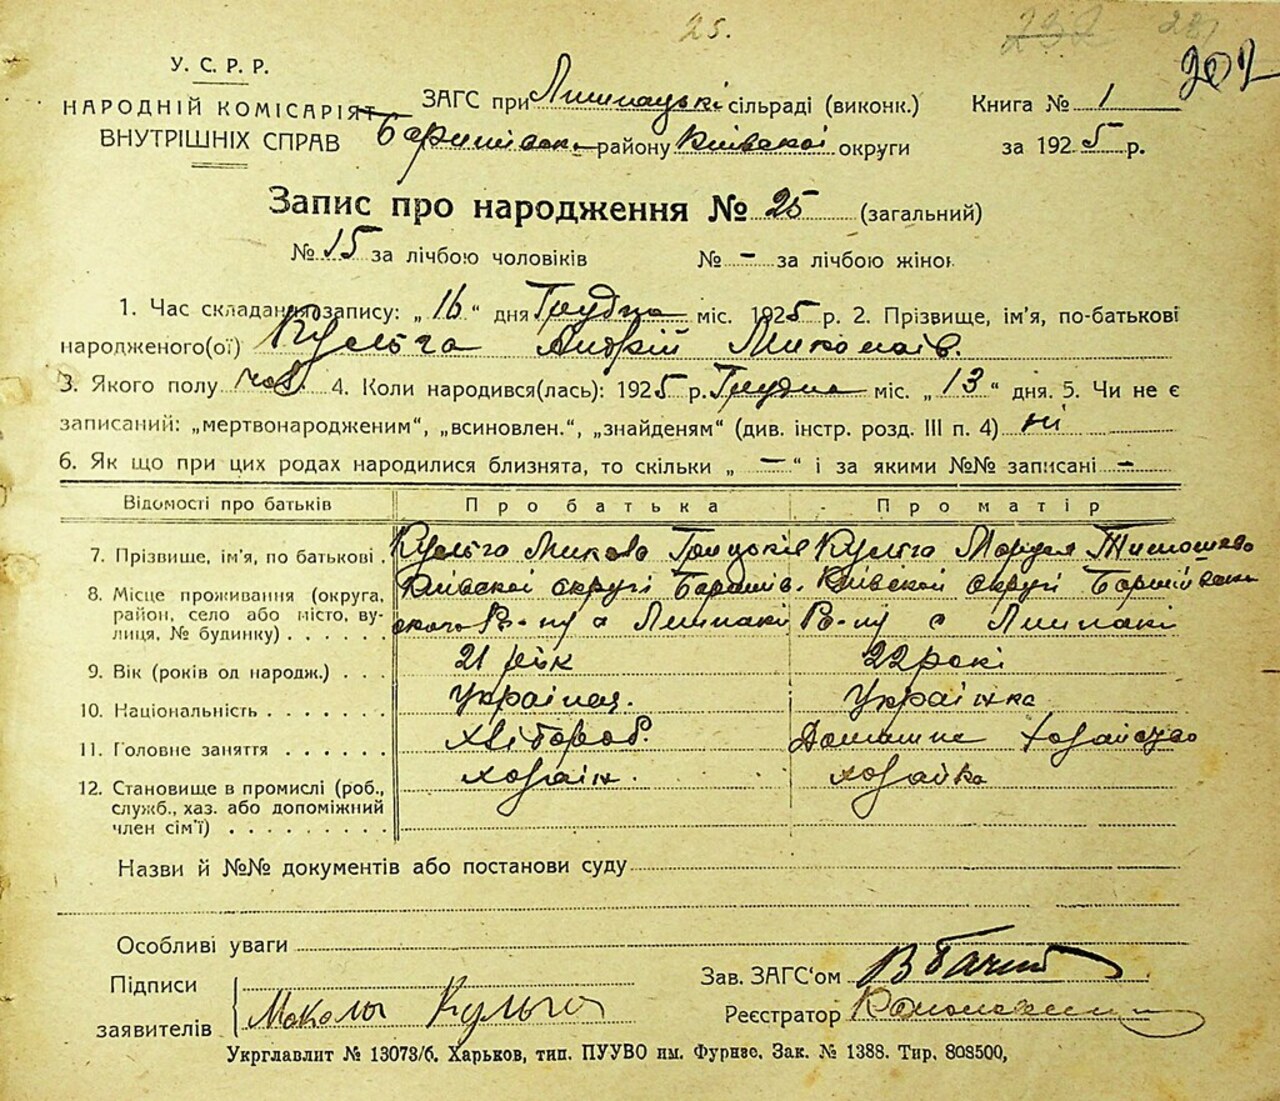 25.
232 231
202
У. С. Р. Р.
НАРОДНІЙ КОМІСАРІЯТ
ВНУТРІШНІХ СПРАВ
ЗАГС при сільраді (виконк.) Книга № 1
району Київської округи за 1925 р.
Запис про народження № 25 (загальний)
№ 15 за лічбою чоловіків № – за лічбою жінок
1. Час складання запису: „16“ дня Грудня міс. 1925 р. 2. Прізвище, ім’я, по-батькові
народженого(ої) Кульга Андрій Миколаїв.
3. Якого полу чол. 4. Коли народився(лась): 1925 р. Грудня міс. „13“ дня. 5. Чи не є
записаний: „мертвонародженим“, „всиновлен.“, „знайденям“ (див. інстр. розд. III п. 4) ні
6. Як що при цих родах народилися близнята, то скільки „ – “ і за якими №№ записані –
Відомості про батьків Про батька Про матір
7. Прізвище, ім’я, по батькові . Кульга Микола Кульга Маруся
8. Місце проживання (округа, Київскої округі Київскої округі
район, село або місто, ву- Р-ну с Р-ну с
лиця, № будинку) . . . . . .
9. Вік (років од народж.) . . . 21 рік 22 рокі
10. Національність . . . . . . . Україная. Українка
11. Головне заняття . . . . . . хлібороб. Домашне хозайство
12. Становище в промислі (роб., хозаін. хозайка
служб., хаз. або допоміжний
член сім’ї) . . . . . . . . .
Назви й №№ документів або постанови суду
Особливі уваги
Підписи
заявителів Кульга
Зав. ЗАГС‘ом
Реєстратор
Укрглавлит № 13073/б. Харьков, тип. ПУУВО им. Фрунзе. Зак. № 1388. Тир. 808500,